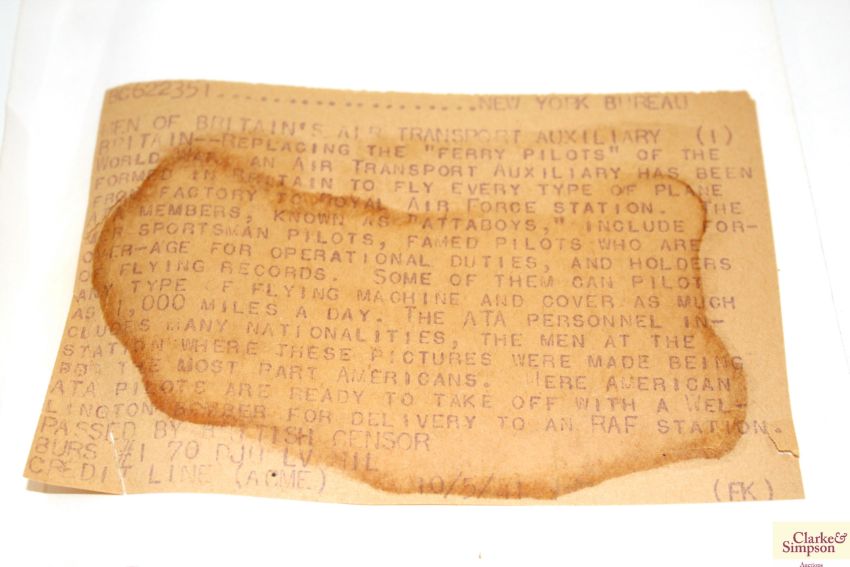 BG622351....................NEW YORK BUREAU
MEN OF BRITAIN'S AIR TRANSPORT AUXILIARY (1)
BRITAIN--REPLACING THE "FERRY PILOTS" OF THE
WORLD WAR, AN AIR TRANSPORT AUXILIARY HAS BEEN
FORMED IN BRITAIN TO FLY EVERY TYPE OF PLANE
FROM FACTORY TO ROYAL AIR FORCE STATION. THE
ATA MEMBERS, KNOWN AS "ATTABOYS," INCLUDE FOR-
MER SPORTSMAN PILOTS, FAMED PILOTS WHO ARE
OVER-AGE FOR OPERATIONAL DUTIES, AND HOLDERS
OF FLYING RECORDS. SOME OF THEM CAN PILOT
ANY TYPE OF FLYING MACHINE AND COVER AS MUCH
AS 1,000 MILES A DAY. THE ATA PERSONNEL IN-
CLUDES MANY NATIONALITIES, THE MEN AT THE
STATION WHERE THESE PICTURES WERE MADE BEING
FOR THE MOST PART AMERICANS. HERE AMERICAN
ATA PILOTS ARE READY TO TAKE OFF WITH A WEL-
LINGTON BOMBER FOR DELIVERY TO AN RAF STATION.
PASSED BY BRITISH CENSOR
BURS #1 70 LV
CREDIT LINE (ACME) 10/5/41 (FK)
Clarke&
Simpson
Auctions